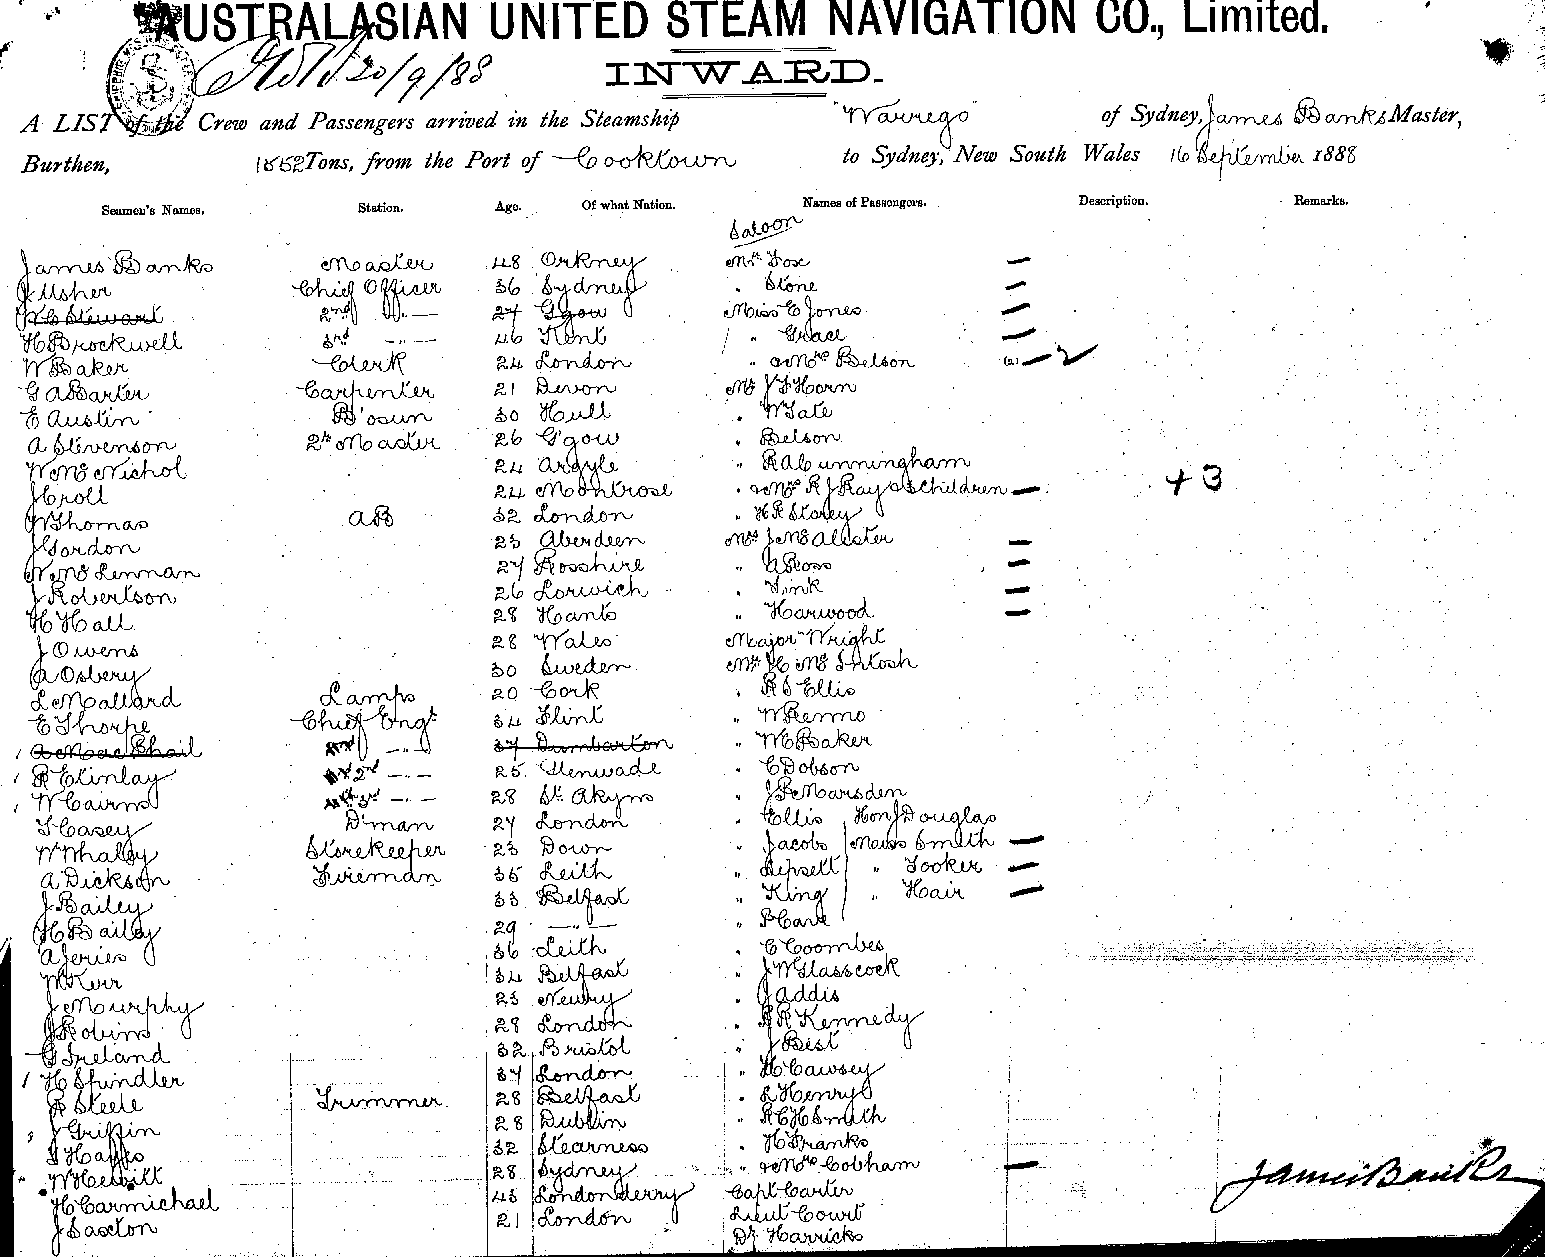 AUSTRALASIAN UNITED STEAM NAVIGATION CO., Limited.
20/9/88
INWARD.
A LIST of the Crew and Passengers arrived in the Steamship "Warrego" of Sydney, James Banks Master,
Burthen, 1552 Tons, from the Port of Cooktown to Sydney, New South Wales 16 September 1888
Seamen's Names. Station. Age. Of what Nation. Names of Passengers. Description. Remarks.
Saloon
James Banks Master 48 Orkney Mr Fox —
J Usher Chief Officer 36 Sydney " Stone —
W C Stewart 2nd " — 27 Ggow Miss E Jones —
H Brockwell 3rd — " — 46 Kent " Grace —
W Baker Clerk 24 London " & Mrs Belson (2) — 2
G A Barter Carpenter 21 Devon Mr J F Horn
E Austin B'osun 30 Hull " W Tate
A Stevenson 2nd Master 26 G'gow " Belson
W McNichol 24 Argyle " R A Cunningham
J Croll 24 Montrose " & Mrs R J Ray & 3 Children — + 3
W Thomas AB 32 London " H R Storey
J Gordon 23 Aberdeen Mrs J McAllister —
N McLennan 27 Rosshire " A Ross —
J Robertson 26 Lorwich " Fink —
H Hall 28 Hants " Harwood —
J Owens 28 Wales Major Wright
A Osbery 30 Sweden Mr J C McIntosh
L Mallard Lamps 20 Cork " R S Ellis
E Thorpe Chief Engr 34 Flint " W Renno
A MacPhail — " — 37 Dumbarton " W C Baker
R E Kinlay 2nd — " — 25 Glenwade " C Dobson
W Cairns 3rd — " — 28 St Akyns " J P Marsden
T Casey D'man 27 London " Ellis Hon J Douglas
W Whaley Storekeeper 23 Down " Jacobs Miss Smith —
A Dickson Fireman 35 Leith " Lipsett " Tooker —
J Bailey 33 Belfast " King " Hair —
H Bailey 29 — " — " P Cave
A Jeries 36 Leith " C Coombes
W Kerr 34 Belfast " J W Glasscock
J Murphy 23 Newry " J Addis
J Robins 28 London " R R Kennedy
G Ireland 32 Bristol " J Best
H Spindler 37 London " H Cawsey
R Steele Trimmer 28 Belfast " L Henry
J Griffin 28 Dublin " R C H Smith
32 Stearness " H Franks
W Hewitt 28 Sydney " & Mrs Cobham —
H Carmichael 45 Londonderry Capt Carter
J Saxton 21 London Lieut Court
Dr Harricks
James Banks